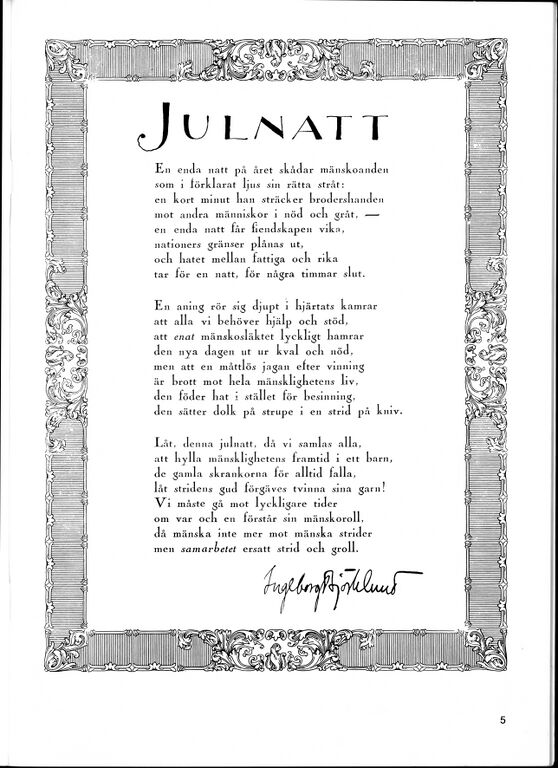 JULNATT
En enda natt på året skådar mänskoanden
som i förklarat ljus sin rätta stråt:
en kort minut han sträcker brodershanden
mot andra människor i nöd och gråt, —
en enda natt får fiendskapen vika,
nationers gränser plånas ut,
och hatet mellan fattiga och rika
tar för en natt, för några timmar slut.
En aning rör sig djupt i hjärtats kamrar
att alla vi behöver hjälp och stöd,
att enat mänskosläktet lyckligt hamrar
den nya dagen ut ur kval och nöd,
men att en måttlös jagan efter vinning
är brott mot hela mänsklighetens liv,
den föder hat i stället för besinning,
den sätter dolk på strupe i en strid på kniv.
Låt, denna julnatt, då vi samlas alla,
att hylla mänsklighetens framtid i ett barn,
de gamla skrankorna för alltid falla,
låt stridens gud förgäves tvinna sina garn!
Vi måste gå mot lyckligare tider
om var och en förstår sin mänskoroll,
då mänska inte mer mot mänska strider
men samarbetet ersatt strid och groll.
Ingeborg Björklund
5